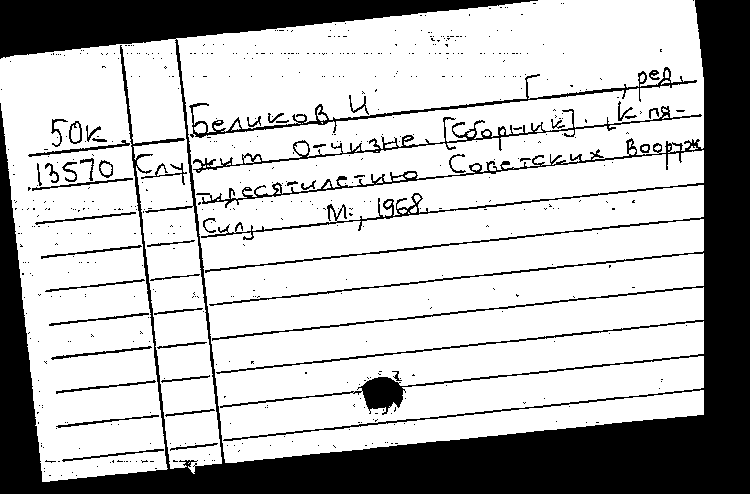 Беликов, И Г , ред.
50к.
13570 Служит Отчизне. [Сборник]. [К пя-
тидесятилетию Советских Вооруж
Сил]. М., 1968.